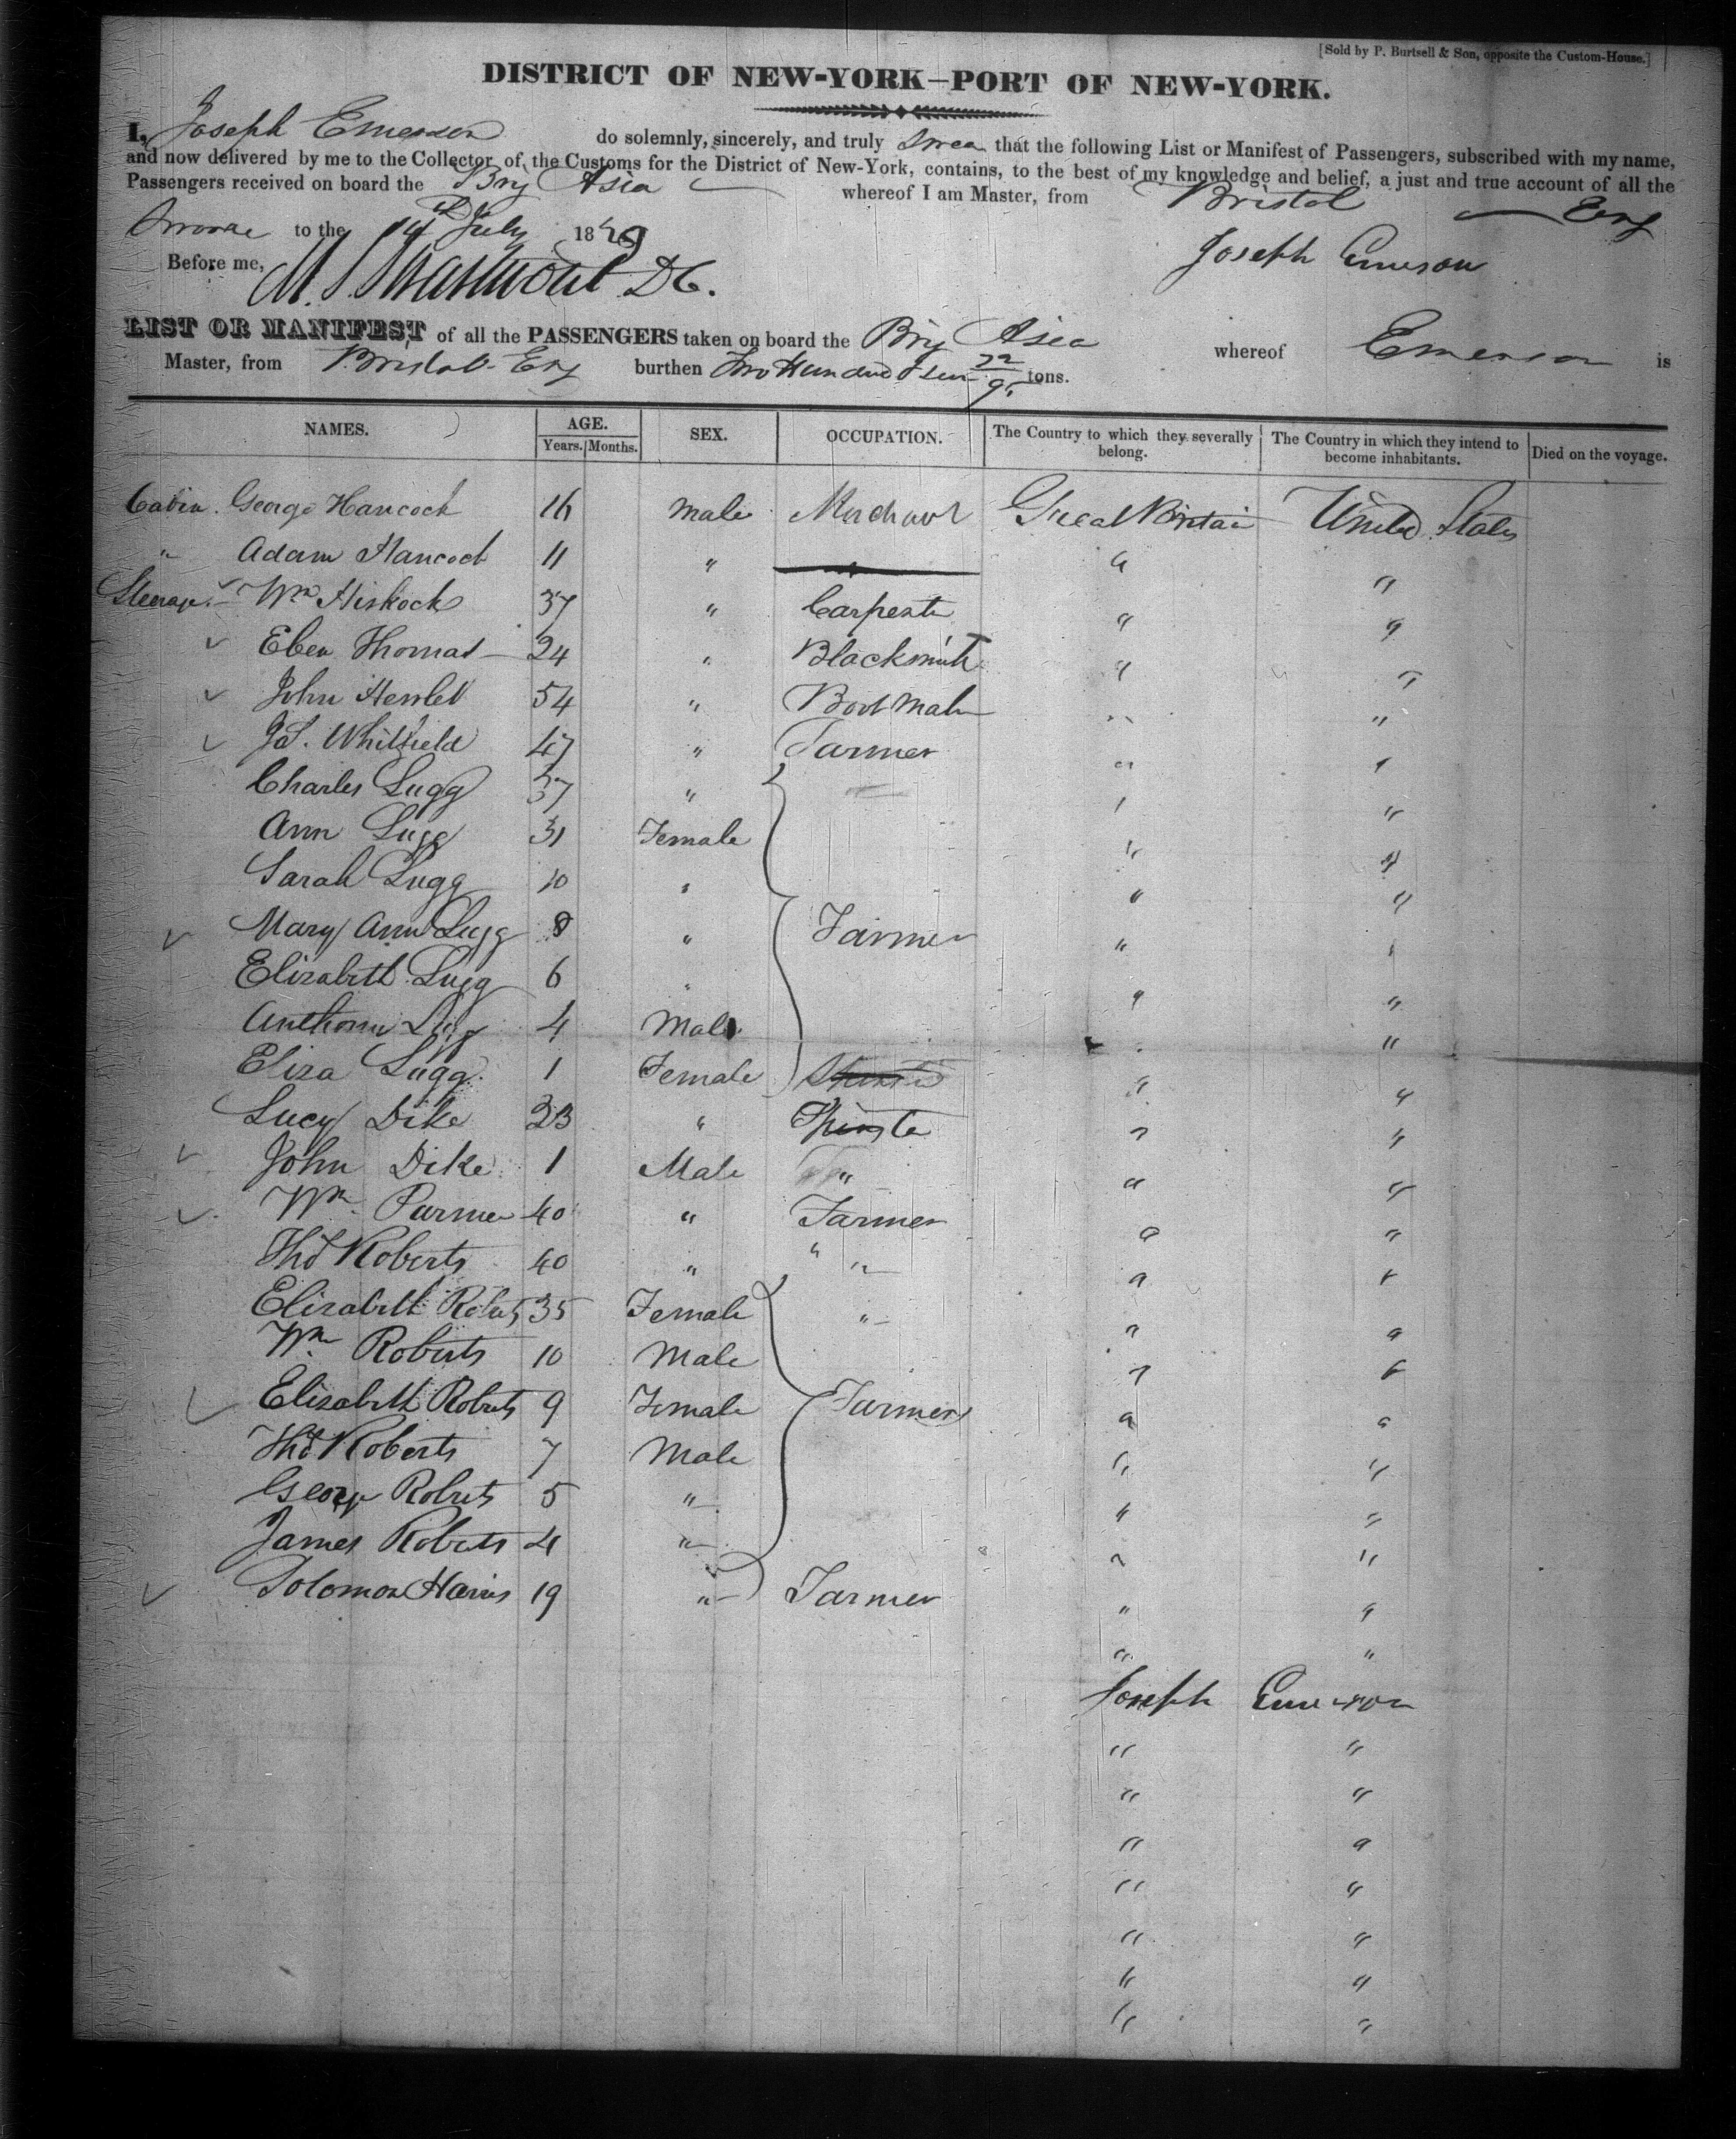 [Sold by P. Burtsell & Son, opposite the Custom-House.]
DISTRICT OF NEW-YORK—PORT OF NEW-YORK.
I, Joseph Emerson do solemnly, sincerely, and truly swear that the following List or Manifest of Passengers, subscribed with my name,
and now delivered by me to the Collector of the Customs for the District of New-York, contains, to the best of my knowledge and belief, a just and true account of all the
Passengers received on board the Brig Asia whereof I am Master, from Bristol Eng
to the 14th July 18
Before me, Joseph Emerson
D C.
LIST OR MANIFEST of all the PASSENGERS taken on board the Brig Asia whereof Emerson is
Master, from Bristol Eng burthen Two Hundred tons.
NAMES. AGE. SEX. OCCUPATION. The Country to which they severally belong. The Country in which they intend to become inhabitants. Died on the voyage.
Years. Months.
Cabin. George Hancock 16 Male Merchant Great Britain United States
" Adam Hancock 11 " " "
Steerage Wm Hiskock 37 " Carpenter " "
Eben Thomas 24 " Blacksmith " "
John 54 " Boot Maker " "
Js. Whitfield 47 " Farmer " "
Charles Lugg 37 " " "
Ann Lugg 31 Female " "
Sarah Lugg 10 " " "
Mary Ann Lugg 8 " Farmer " "
Elizabeth Lugg 6 " " "
Anthony Lugg 4 Male " "
Eliza Lugg 1 Female " "
Lucy Dike 23 " " "
John Dike 1 Male " " "
Wm Parmer 40 " Farmer " "
Thos Roberts 40 " " " "
Elizabeth Roberts 35 Female " " "
Wm Roberts 10 Male " "
Elizabeth Roberts 9 Female Farmers " "
Thos Roberts 7 Male " "
George Roberts 5 " " "
James Roberts 4 " " "
Solomon Harris 19 " Farmer " "
" "
Joseph Emerson
" "
" "
" "
" "
" "
" "
" "